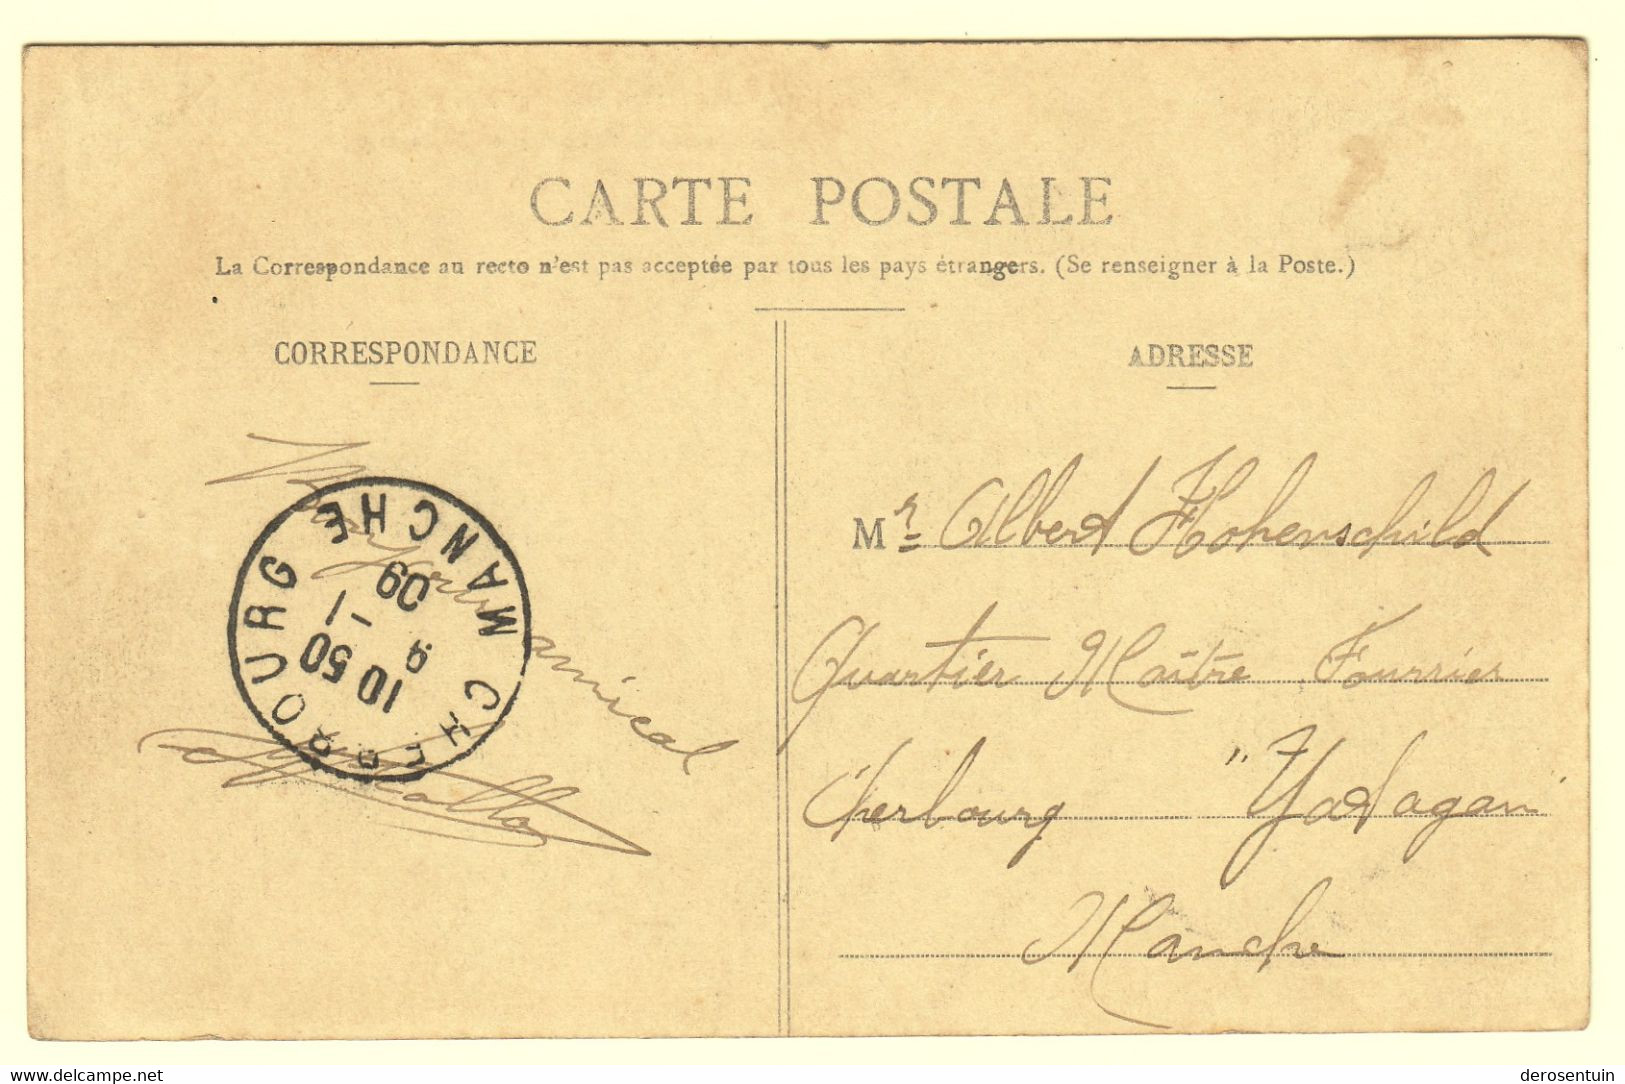 CARTE POSTALE
La Correspondance au recto n'est pas acceptée par tous les pays étrangers. (Se renseigner à la Poste.)
CORRESPONDANCE
amical
CHERBOURG MANCHE
10 50
9 -1
09
ADRESSE
Mr Albert Hohenschild
Quartier Maître Fourrier
Cherbourg "Yatagan
Manche
www.delcampe.net
derosentuin